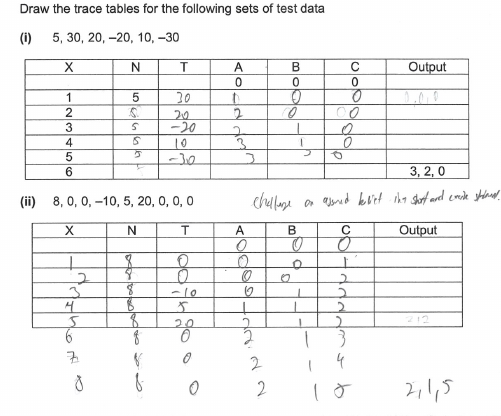 Draw the trace tables for the following sets of test data
(i) 5, 30, 20, –20, 10, –30
X N T A B C Output
0 0 0
1 5 30 1 0 0 0,0,0
2 5 20 2 0 0
3 5 -20 2 1 0
4 5 10 3 1 0
5 5 -30 3 2 0
6 3, 2, 0
(ii) 8, 0, 0, –10, 5, 20, 0, 0, 0
X N T A B C Output
0 0 0
1 8 0 0 0 1
2 8 0 0 0 2
3 8 -10 0 1 2
4 8 5 1 1 2
5 8 20 2 1 2 212
6 8 0 2 1 3
7 8 0 2 1 4
8 8 0 2 1 5 2,1,5